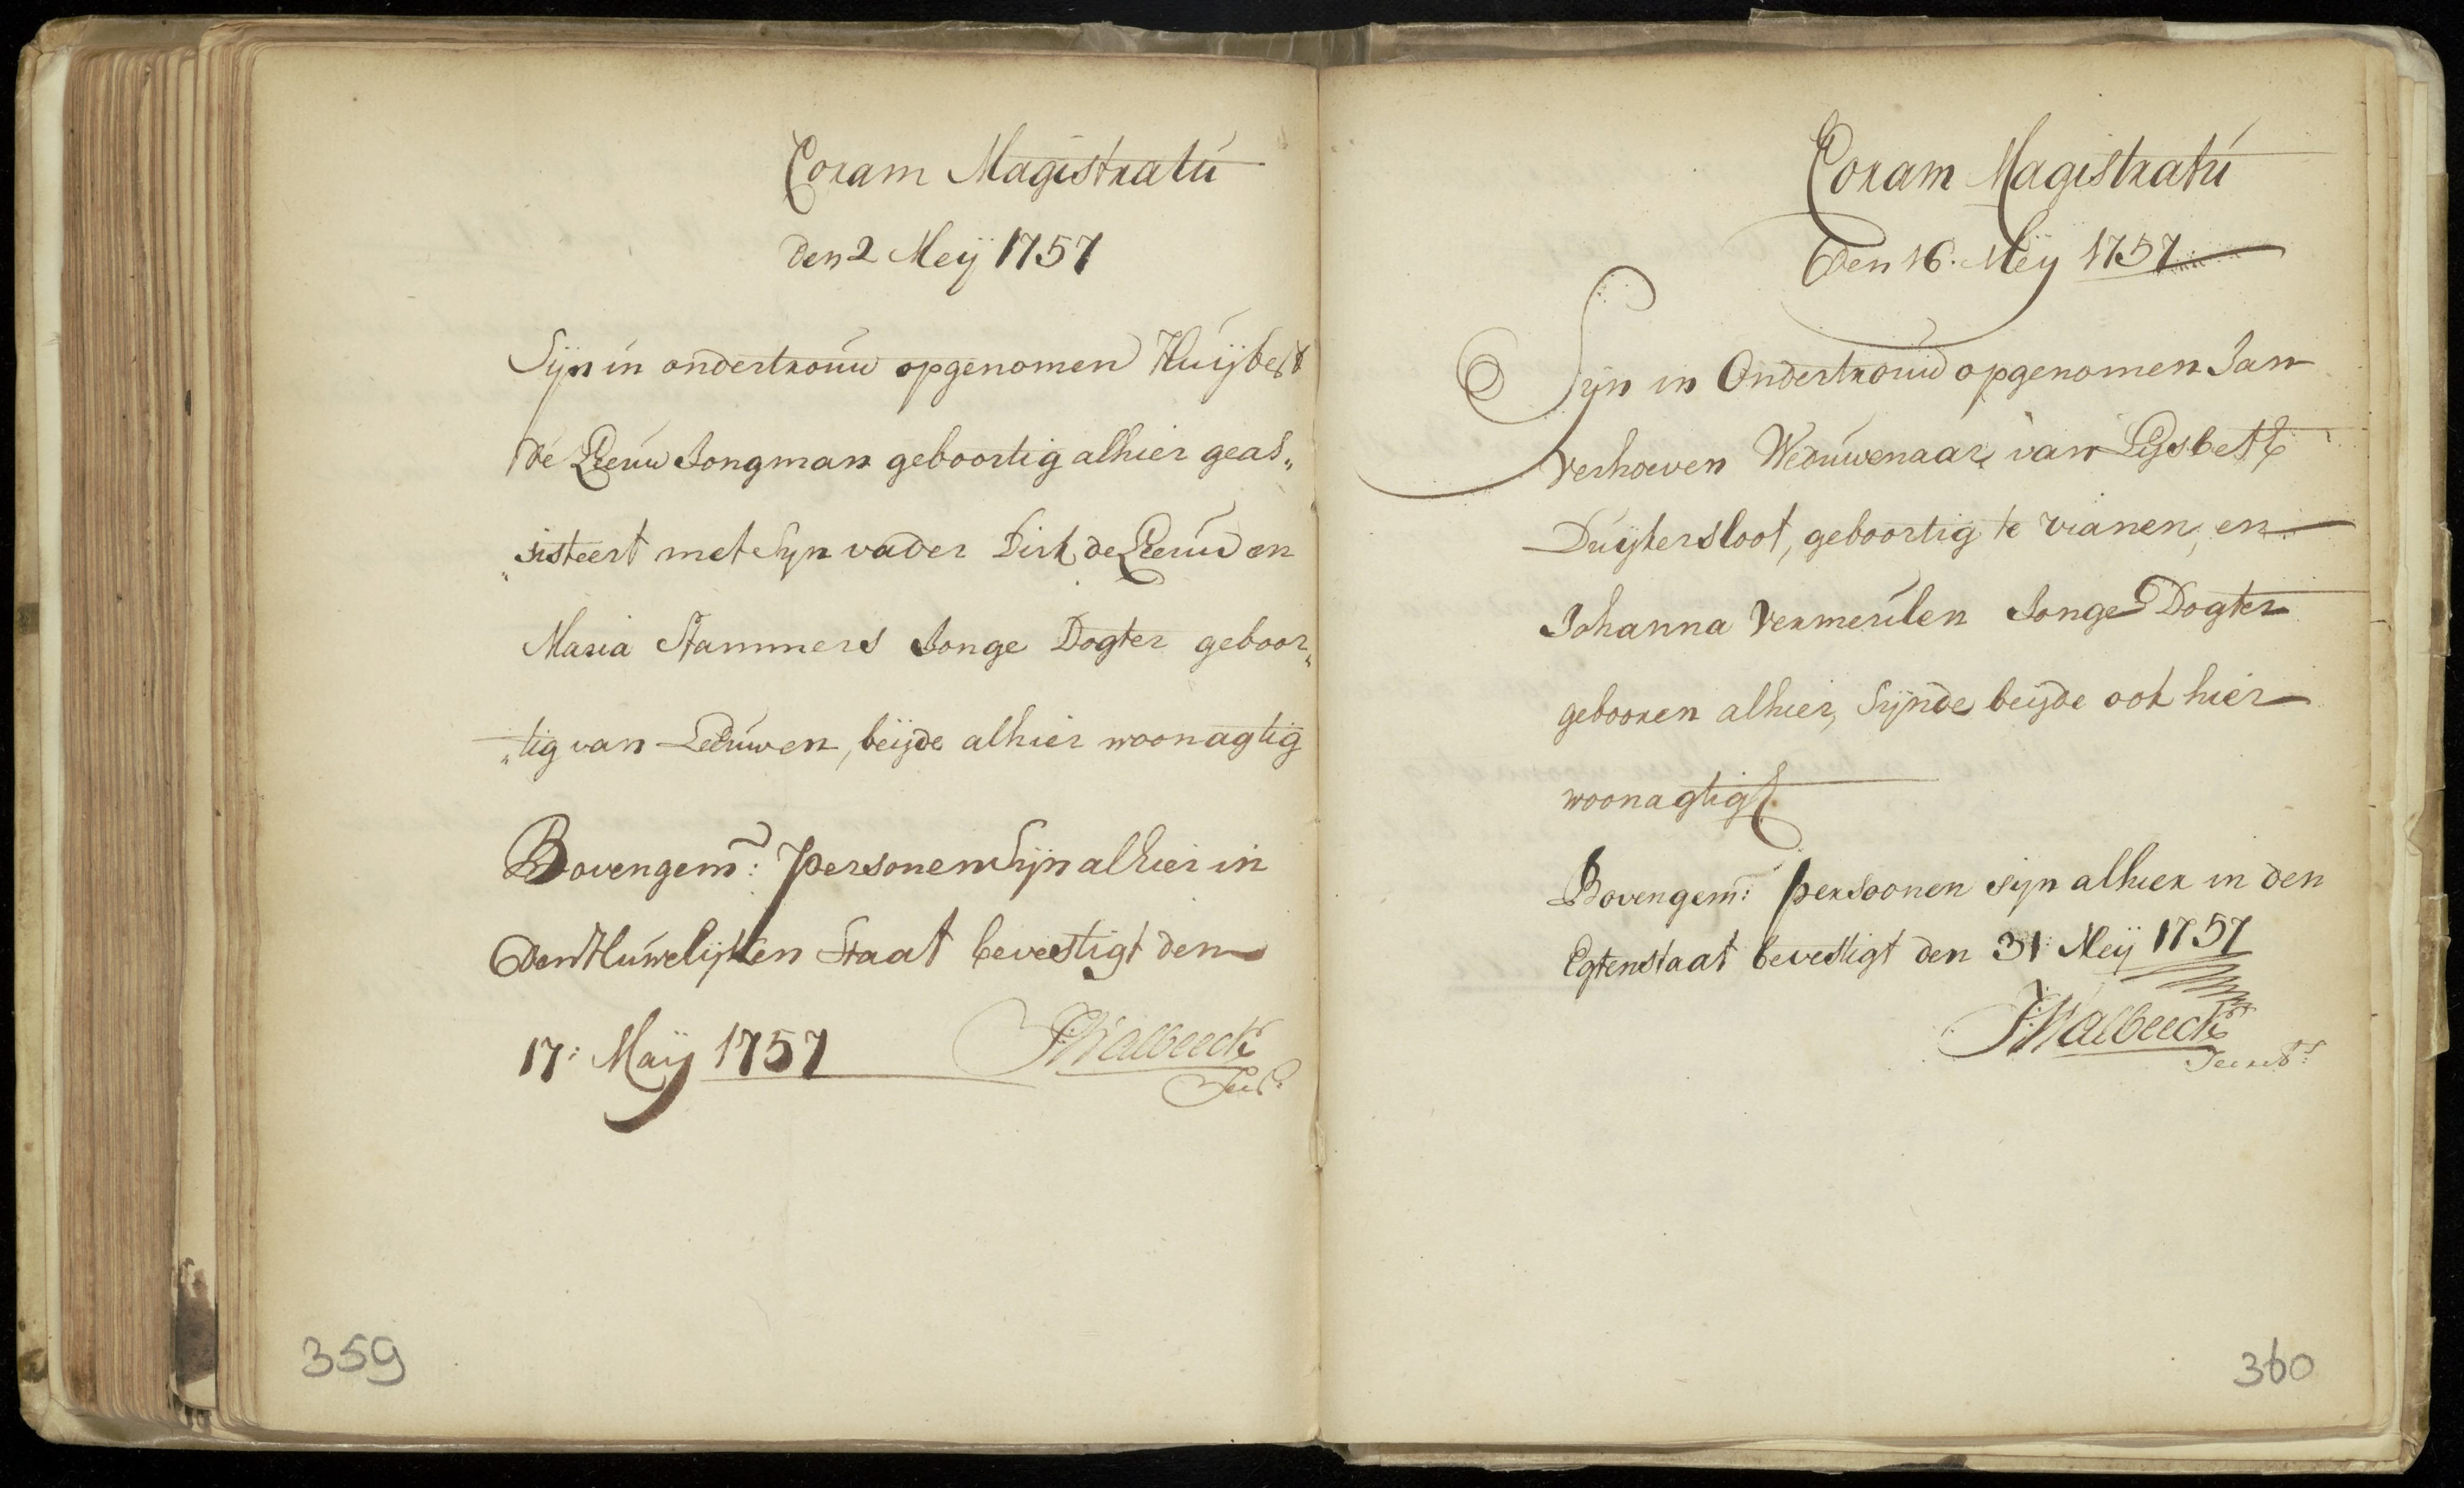 Coram Magistratú
den 2 Meÿ 1757
Sijn in ondertroúw opgenomen Húijbert
de Leeúw Jongman geboortig alhier geas„
„sisteert met sijn vader Dirk de Leeúw en
Maria Stammers Jonge Dogter geboor„
„tig van Leeúwen, beijde alhier woonagtig
Bovengem: personen sijn alhier in
den Húwelijken Staat bevestigt den
17: Maÿ 1757 JWalbeeck
Secr:
359
Coram Magistratú
Den 16. Meÿ 1757
Sijn in Ondertroúw opgenomen Jan
Verhoeven Wedúwenaar van Lijsbeth
Dúijkersloot, geboortig te Vianen, en
Johanna Vermeúlen Jonge Dogter
gebooren alhier, sijnde beijde ook hier
woonagtig
Bovengem: persoonen sijn alhier in den
Egtenstaat bevestigt den 31 Meÿ 1757
JWalbeeck
Secrets:
360